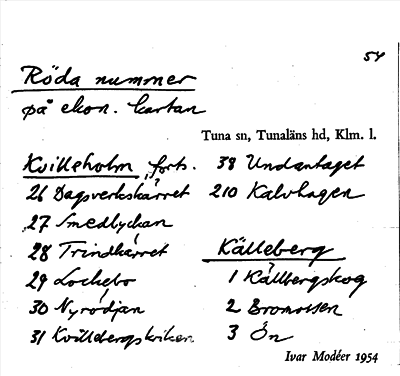 54
Röda nummer
på ekon. kartan
Tuna sn, Tunaläns hd, Klm. l.
Kvilleholm, forts.
26 Dagsverkskärret
27 Smedlyckan
28 Trindkärret
29 Lockebo
30 Nyrödjan
31
38 Undantaget
210 Kalvhagen
Källeberg
1 Källbergskog
2 Bromossen
3 Ön
Ivar Modéer 1954